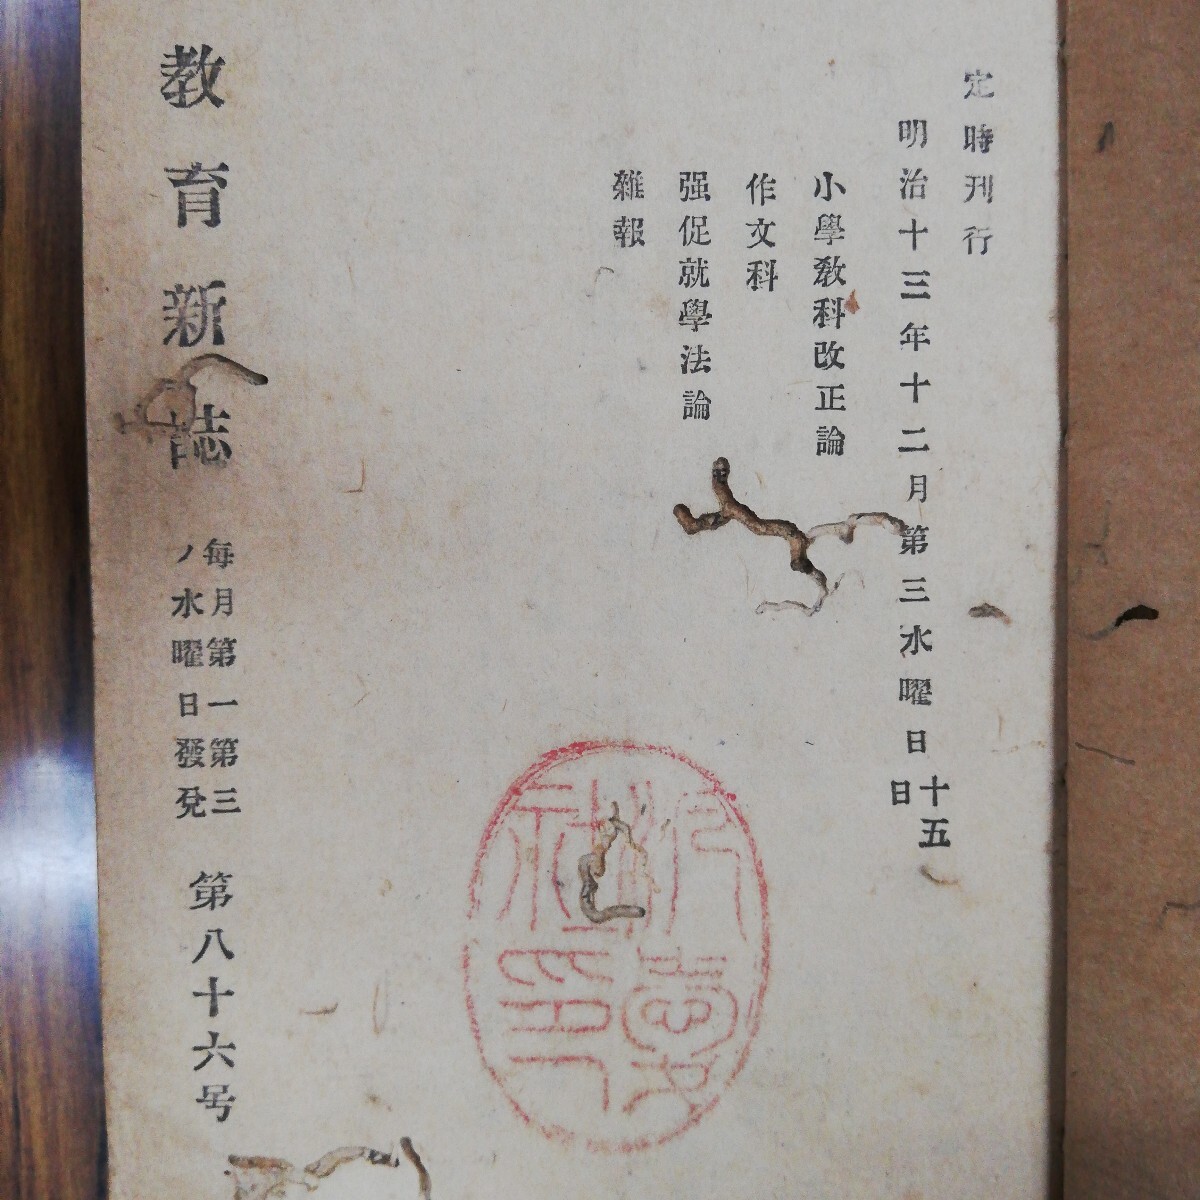 定時刊行
明治十三年十二月第三水曜日十五日
小學敎科改正論
作文科
强促就學法論
雜報
教育新誌
每月第一第三
ノ水曜日發兌
第八十六号